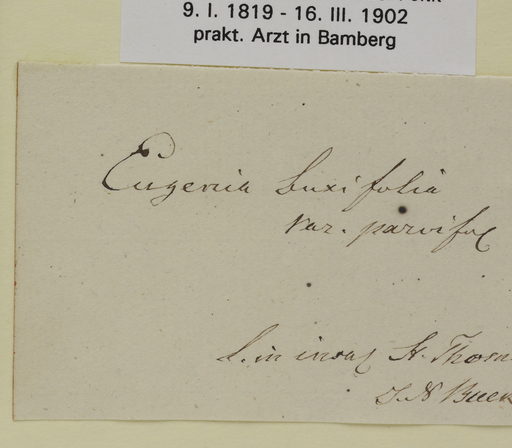 9. I. 1819 - 16. III. 1902
prakt. Arzt in Bamberg
Eugenia buxifolia
var. parvifol
St. Thom